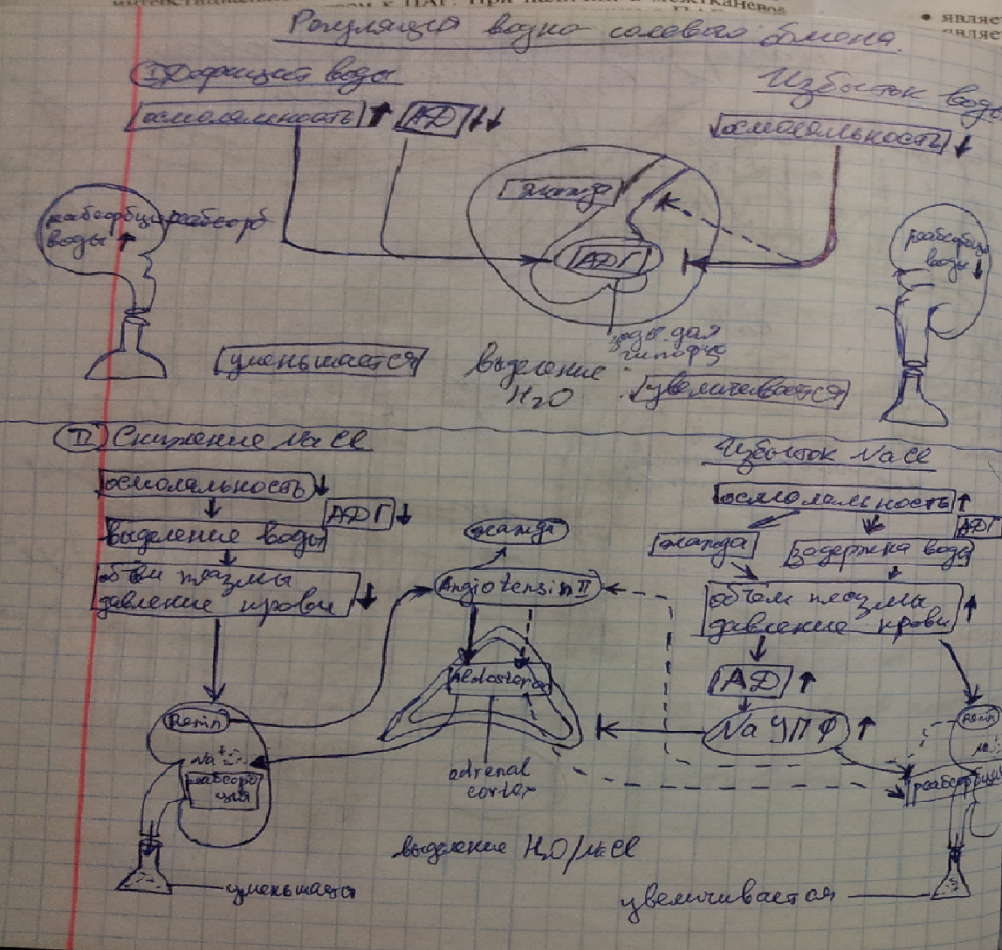 Регуляция водно солевого обмена.
I Дефицит воды
Избыток воды
осмоляльность ↑ АД ↓↓
осмоляльность ↓
жажда
реабсорбция реабсорб
воды ↑
АДГ
реабсорбция
воды ↓
задн. доля
гипофиза
уменьшается
выделение
H₂O
увеличивается
II Снижение NaCl
Избыток NaCl
осмоляльность ↓
осмоляльность ↑
АДГ ↓
жажда
АДГ
выделение воды
жажда
задержка воды
объем плазмы
давление крови ↓
Angiotensin II
объем плазмы
давление крови ↑
Aldosteron
АД ↑
Renin
Na УПФ ↑
Renin
Na⁺
Na⁺
реабсорб
ция
adrenal
cortex
реабсорбция
выделение H₂O/NaCl
уменьшается
увеличивается